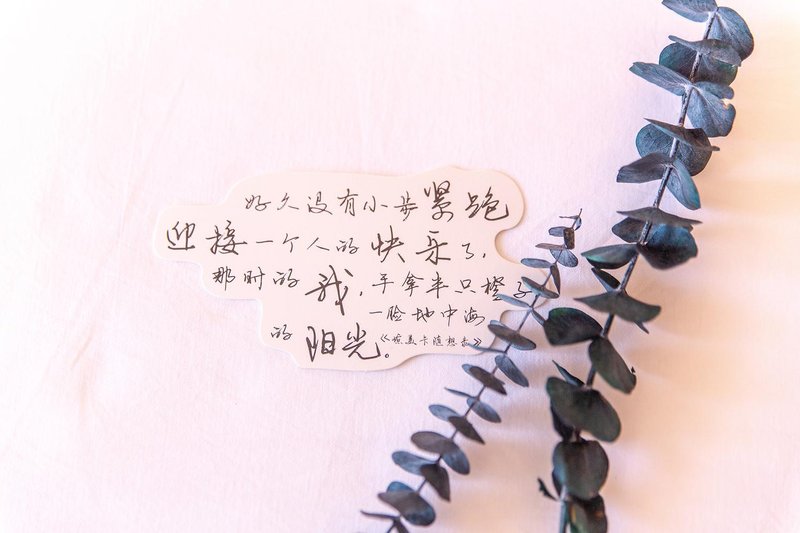 好久没有小步紧跑
迎接一个人的快乐了,
那时的我,手拿半只橙子
一脸地中海
的阳光。《陪美卡随想曲》